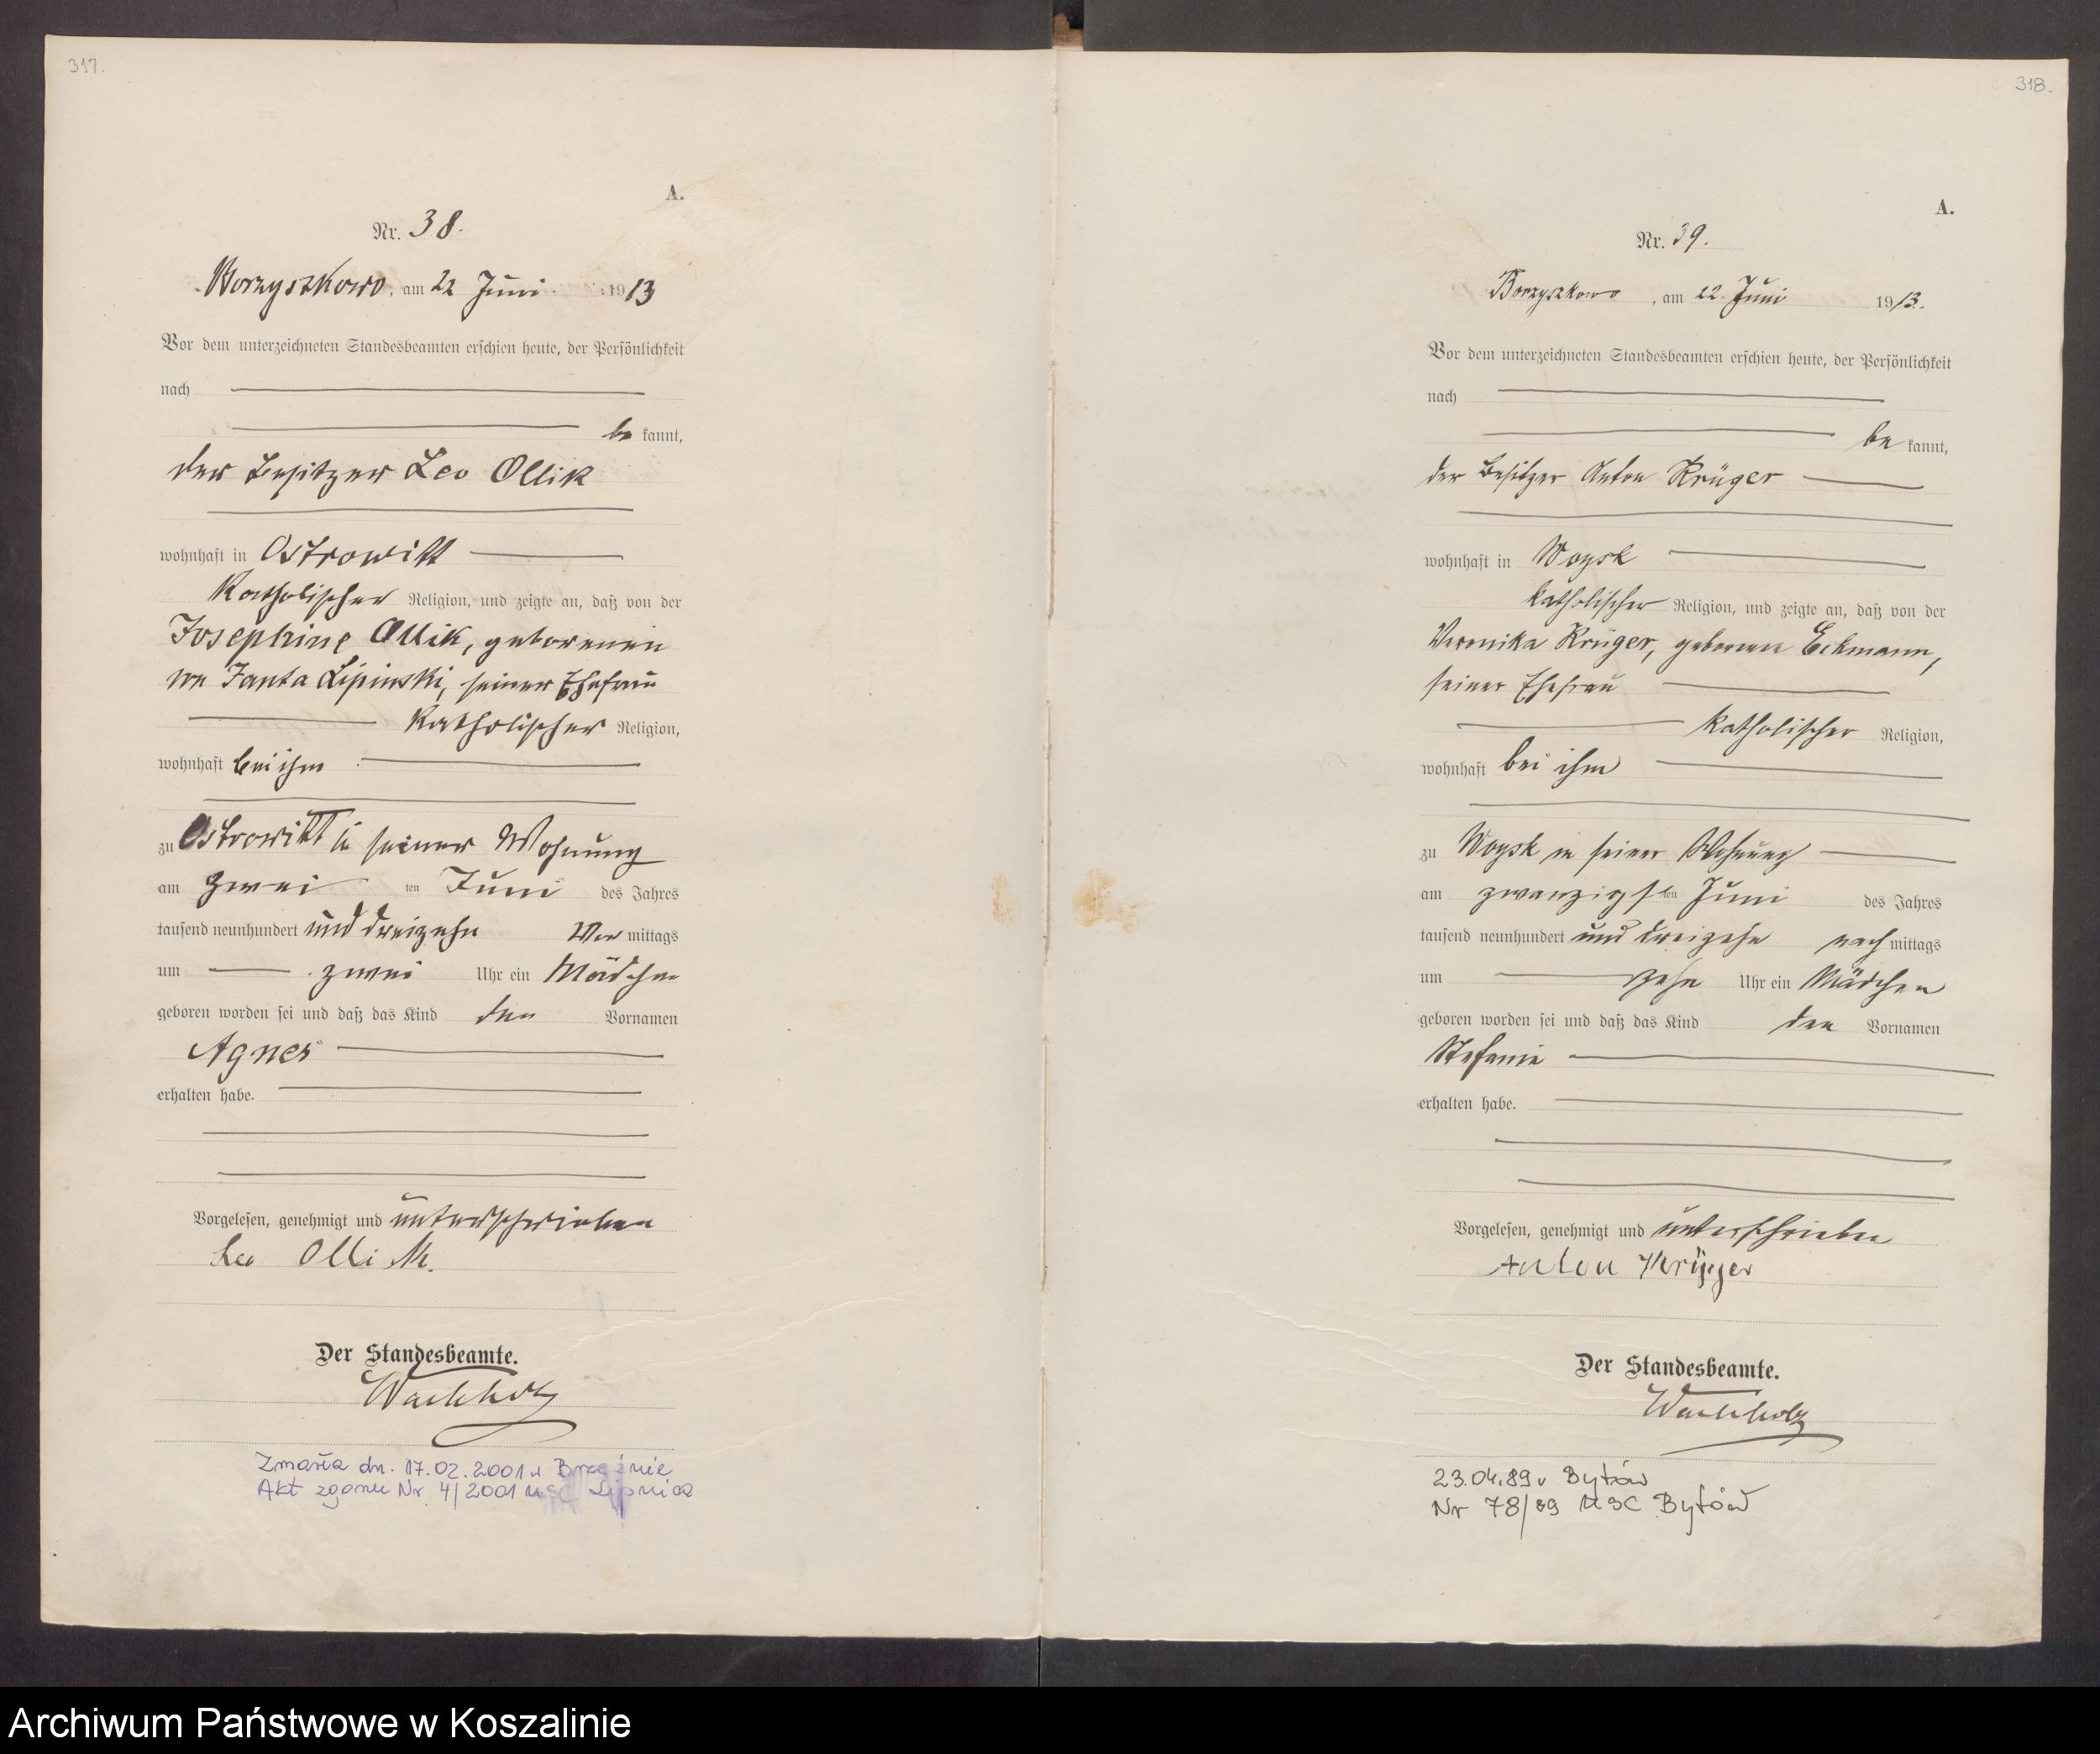 317.
A.
Nr. 38.
Borzyszkowo, am 22 Juni 1913
Vor dem unterzeichneten Standesbeamten erschien heute, der Persönlichkeit
nach
be kannt,
der Besitzer Leo Ollik
wohnhaft in Ostrowitt
katholischer Religion, und zeigte an, daß von der
Josephine Ollik, geborenen
von Janta Lipinski, seiner Ehefrau
katholischer Religion,
wohnhaft bei ihm
zu Ostrowitt in seiner Wohnung
am zwei ten Juni des Jahres
tausend neunhundert und dreizehn Vor mittags
um zwei Uhr ein Mädchen
geboren worden sei und daß das Kind den Vornamen
Agnes
erhalten habe.
Vorgelesen, genehmigt und unterschrieben
Leo Ollik.
Der Standesbeamte.
Wachholz
Zmarła dn. 17.02.2001 w Brzeźnie
Akt zgonu Nr 4/2001 USC Lipnica
318.
A.
Nr. 39.
Borzyszkowo, am 22. Juni 1913.
Vor dem unterzeichneten Standesbeamten erschien heute, der Persönlichkeit
nach
be kannt,
der Besitzer Anton Krüger
wohnhaft in Woysk
katholischer Religion, und zeigte an, daß von der
Veronika Krüger, geborenen Eckmann,
seiner Ehefrau
katholischer Religion,
wohnhaft bei ihm
zu Woysk in seiner Wohnung
am zwanzigsten Juni des Jahres
tausend neunhundert und dreizehn nach mittags
um zehn Uhr ein Mädchen
geboren worden sei und daß das Kind den Vornamen
Stefanie
erhalten habe.
Vorgelesen, genehmigt und unterschrieben
Anton Krüger
Der Standesbeamte.
Wachholz
23.04.89 v Bytów
Nr 78/89 USC Bytów
Archiwum Państwowe w Koszalinie